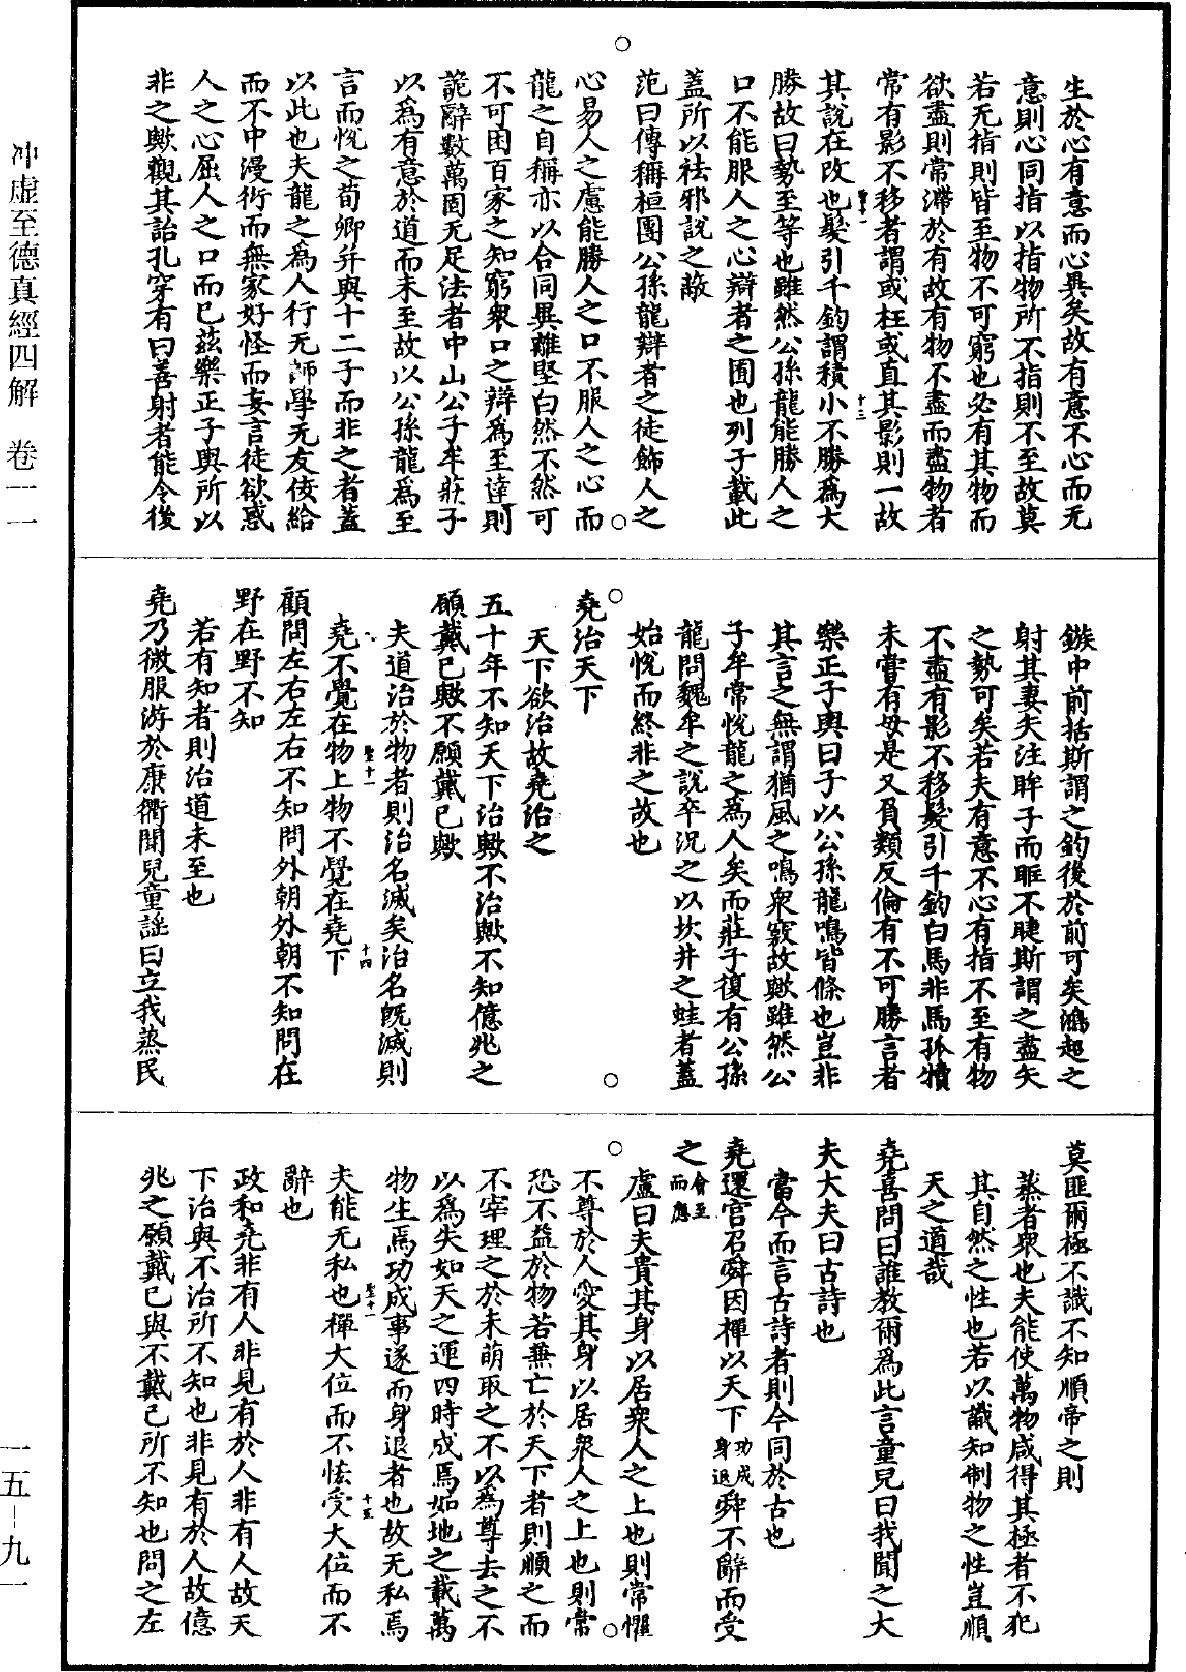 生於心有意而心異矣故有意不心而无
意則心同指以指物所不指則不至故莫
若无指則皆至物不可窮也必有其物而
欲盡則常滯於有故有物不盡而盡物者
常有影不移者謂或枉或直其影則一故
其說在改也髮引千鈞謂積小不勝為大
聖一
十三
勝故曰勢至等也雖然公孫龍能勝人之
口不能服人之心辯者之囿也列子載此
蓋所以祛邪說之蔽
范曰傳稱桓團公孫龍辯者之徒飾人之
心易人之慮能勝人之口不服人之心而
龍之自稱亦以合同異離堅白然不然可
不可困百家之知窮衆口之辯為至達則
詭辭數萬固无足法者中山公子牟莊子
以為有意於道而未至故以公孫龍為至
言而悅之荀卿并與十二子而非之者蓋
以此也夫龍之為人行无師學无友佼給
而不中漫衍而無家好怪而妄言徒欲惑
人之心屈人之口而已茲樂正子輿所以
非之歟觀其詒孔穿有曰善射者能令後
鏃中前括斯謂之鈞後於前可矣鴻超之
射其妻夫注眸子而眶不睫斯謂之盡矢
之勢可矣若夫有意不心有指不至有物
不盡有影不移髮引千鈞白馬非馬孤犢
未嘗有母是又負類反倫有不可勝言者
樂正子輿曰子以公孫龍鳴皆條也豈非
其言之無謂猶風之鳴衆竅故歟雖然公
子牟常悅龍之為人矣而莊子復有公孫
龍問魏牟之說卒況之以坎井之蛙者蓋
始悅而終非之故也
堯治天下
天下欲治故堯治之
五十年不知天下治歟不治歟不知億兆之
願戴已歟不願戴已歟
夫道治於物者則治名滅矣治名既滅則
聖十一
十四
堯不覺在物上物不覺在堯下
顧問左右左右不知問外朝外朝不知問在
野在野不知
若有知者則治道未至也
堯乃微服游於康衢聞兒童謠曰立我蒸民
莫匪爾極不識不知順帝之則
蒸者衆也夫能使萬物咸得其極者不犯
其自然之性也若以識知制物之性豈順
天之道哉
堯喜問曰誰教爾為此言童兒曰我聞之大
夫大夫曰古詩也
當今而言古詩者則今同於古也
堯還宮召舜因禪以天下功成身退舜不辭而受
之會至而應
盧曰夫貴其身以居衆人之上也則常懼
不尊於人愛其身以居衆人之上也則常
恐不益於物若兼亡於天下者則順之而
不宰理之於未萌取之不以為尊去之不
以為失如天之運四時成焉如地之載萬
物生焉功成事遂而身退者也故无私焉
聖十一
十五
夫能无私也禪大位而不恡受大位而不
辭也
政和堯非有人非見有於人非有人故天
下治與不治所不知也非見有於人故億
兆之願戴已與不戴已所不知也問之左
冲虛至德真經四解 卷一一
一五—九一